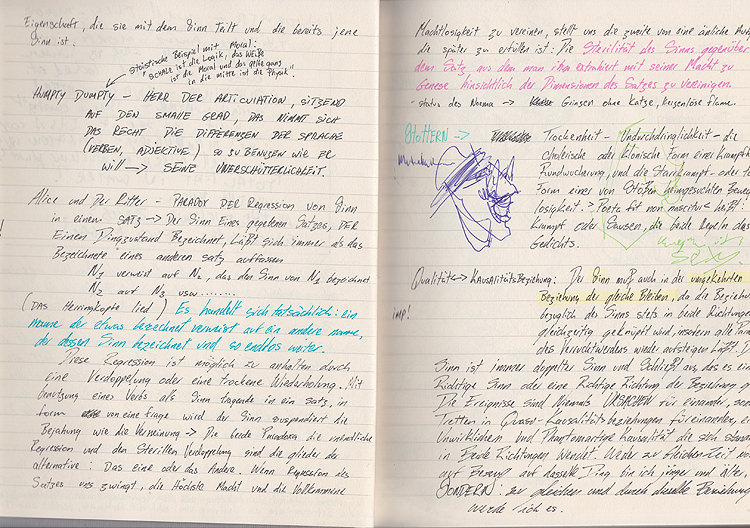 Eigenschaft, die sie mit dem Sinn Teilt und die bereits jene
Sinn ist.
stoistische Beispiel mit Moral:
"SCHALE ist die Logik, das Weiße
ist die Moral und das gelbe ganz
in die mitte ist die Physik"
HUMPTY DUMPTY – HERR DER ARTICULATION, SITZEND
AUF DEN SMALLE GRAD, DAS NIMMT SICH
DAS RECHT DIE DIFFERENZEN DER SPRACHE
(VERBEN, ADJEKTIVE) SO ZU BENUZEN WIE ER
will → SEINE UNERSCHÜTTERLICHKEIT.
Alice und Der Ritter – PARADOX DER Regression von Sinn
in einem SATZ → Der Sinn Eines gegebenen Satzes, DER
Einen Dingzustand Bezeichnet, Läßt sich immer als das
Bezeichnete eines anderen satz auffassen
N1 verweist auf N2, das den Sinn von N1 bezeichnet
N2 auf N3 usw........
(DAS Herringkopfe lied) Es handelt sich tatsächlich: ein
name der etwas bezeichnet verweist auf ein andere name,
der dessen Sinn bezeichnet und so endlos weiter.
Diese Regression ist möglich zu anhalten durch
eine Verdoppelung oder eine trockene Wiederholung. Mit
Benutzung eines Verbs als Sinn tragende in ein satz, in
form von eine frage wird der Sinn suspendiert die
Bejahung wie die Verneinung → Die beide Paradoxa die unendliche
Regression und den Sterilen Verdoppelung sind die glieder der
alternative: Das eine oder das Andre. Wenn Regression des
Satzes uns zwingt, die Höchste Macht und die Vollkommene
Machtlosigkeit zu vereinen, stellt uns die zweite von eine änliche
die später zu erfüllen ist: Die Sterilität des Sinns gegenüber
dem Satz aus dem man ihn extrahiert mit seiner Macht zu
Genese hinsichtlich der Dimensionen des Satzes zu vereinigen.
– status des Noema → Grinsen ohne Katze, kerzenlose flamme.
STOTTERN → Trockenheit – Undurchdringlichkeit – die
cholerische oder klonische Form einer
und die Starrkrampf – oder
Form einer von Stößen heimgesuchten
losigkeit. > Poeta fit non nascitur < heißt:
Krampf oder Sausen, die beide Regeln das
Gedichts.
Qualität ↔ KAUSALITÄTSBEZIEHUNG: Der Sinn muß auch in der umgekehrten
Beziehung der gleiche Bleiben, da die
imp! bezüglich des Sinns stets in beide
gleichzeitig geknüpft wird, insofern alle
des Verrücktwerdens wieder aufsteigen Läßt.
Sinn ist immer doppelter Sinn und Schließt aus, das es
Richtige Sinn oder eine Richtige Richtung der Beziehung
Die Ereignisse sind Niemals URSACHEN für einander,
Tretten in Quasi-Kausalitätsbeziehungen füreinander,
Unwirklichen und Phantomartige Kausalität die sich
in Beide Richtungen Wendet. Weder zu gleichen Zeit
auf Bezug auf dasselbe Ding bin ich jünger und älter,
SONDERN: zur gleichen und durch dieselbe Beziehung
werde ich es.